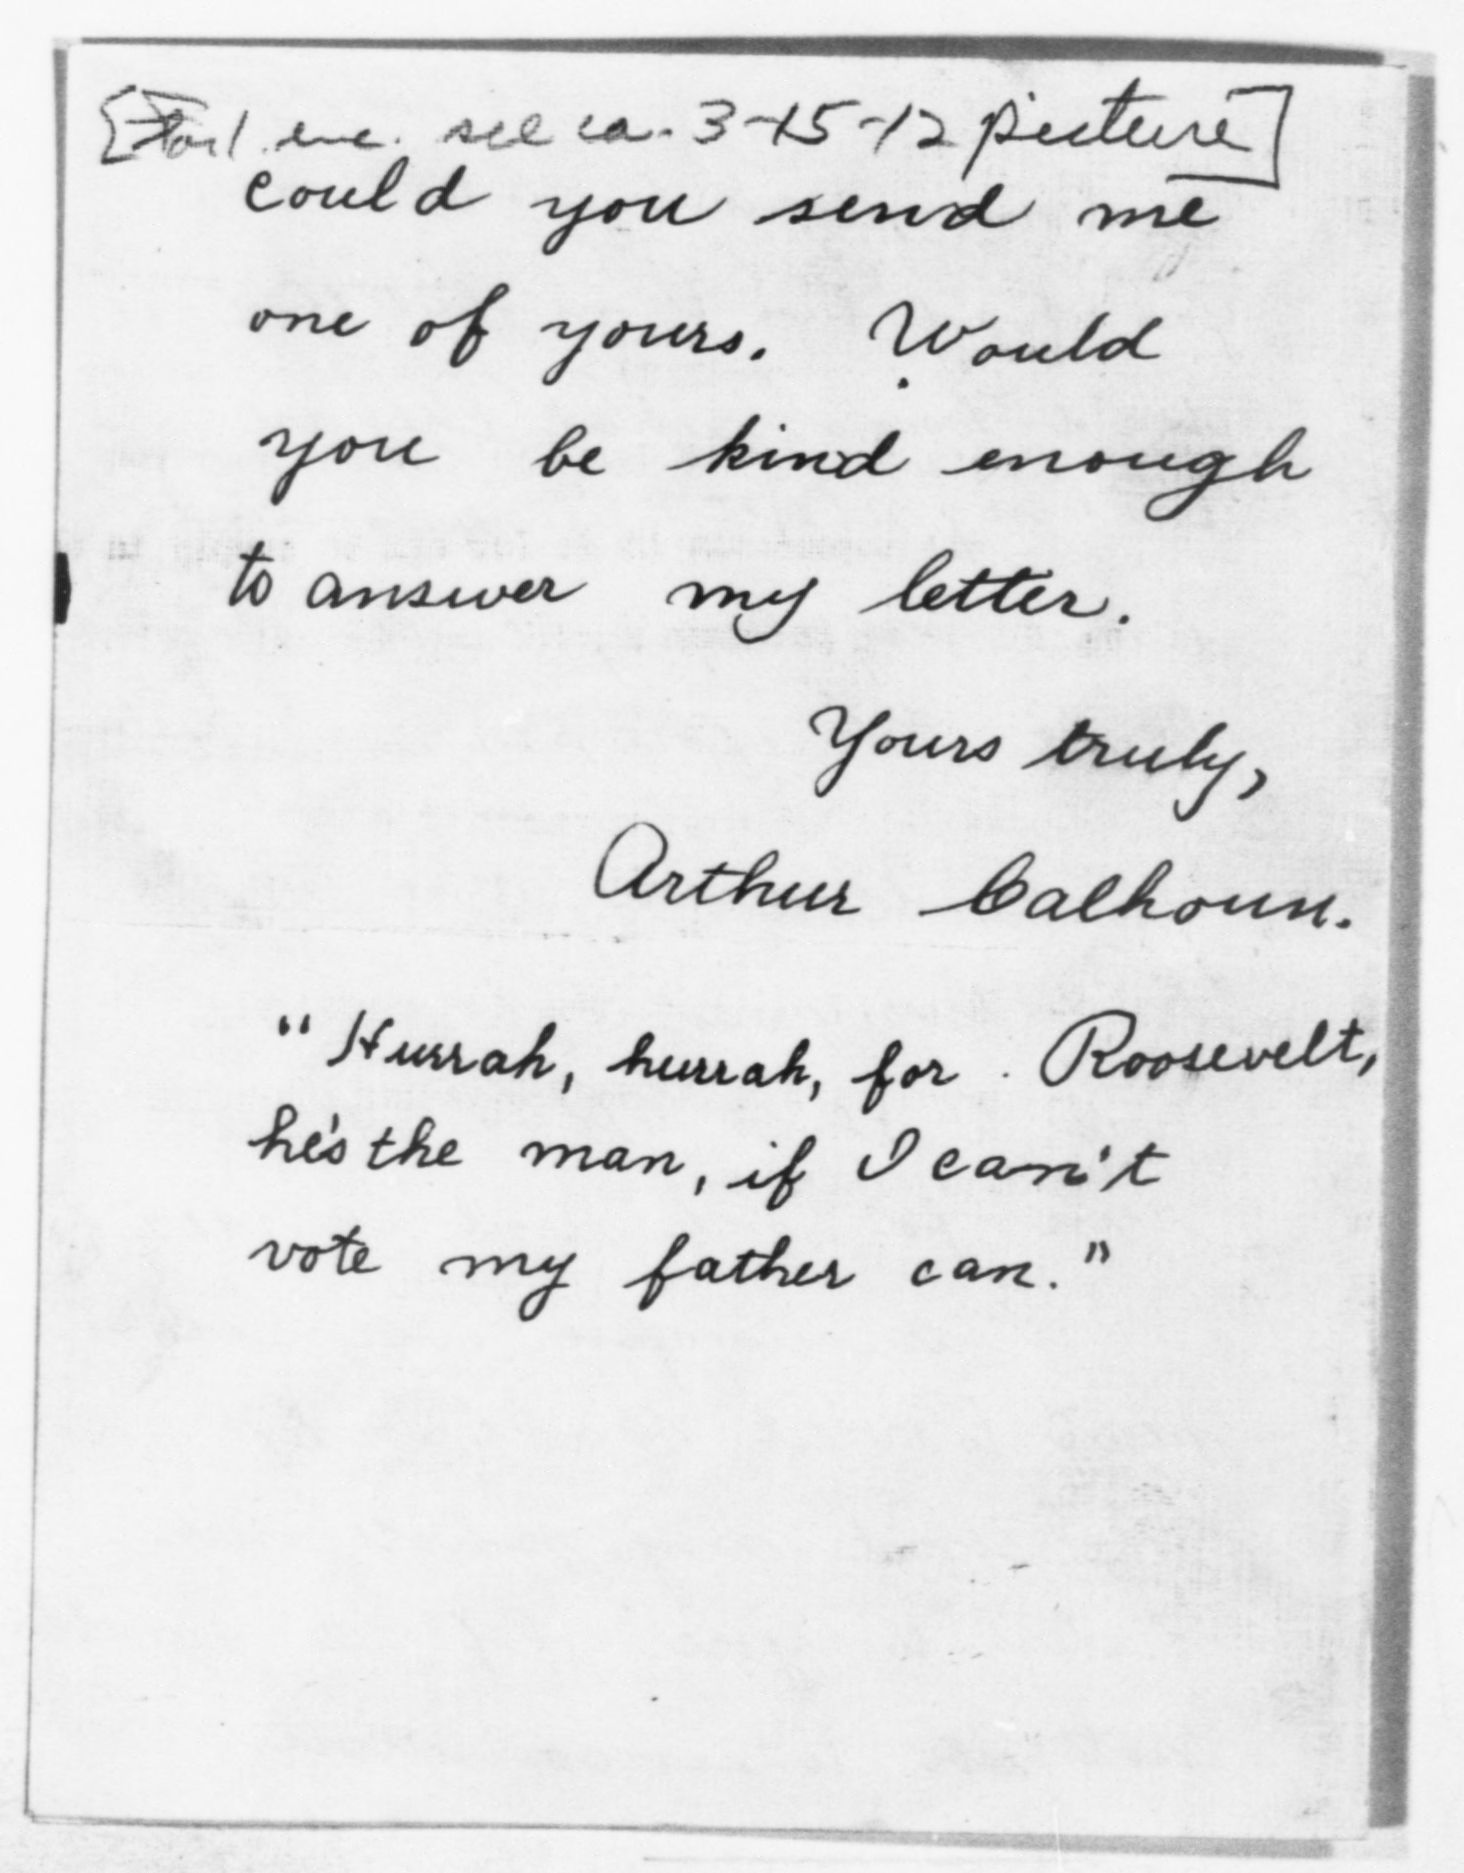 [For 1 enc. see ca. 3-15-12 picture]
could you send me
one of yours. Would
you be kind enough
to answer my letter.
Yours truly,
Arthur Calhoun.
"Hurrah, hurrah, for Roosevelt,
he's the man, if I can't
vote my father can."